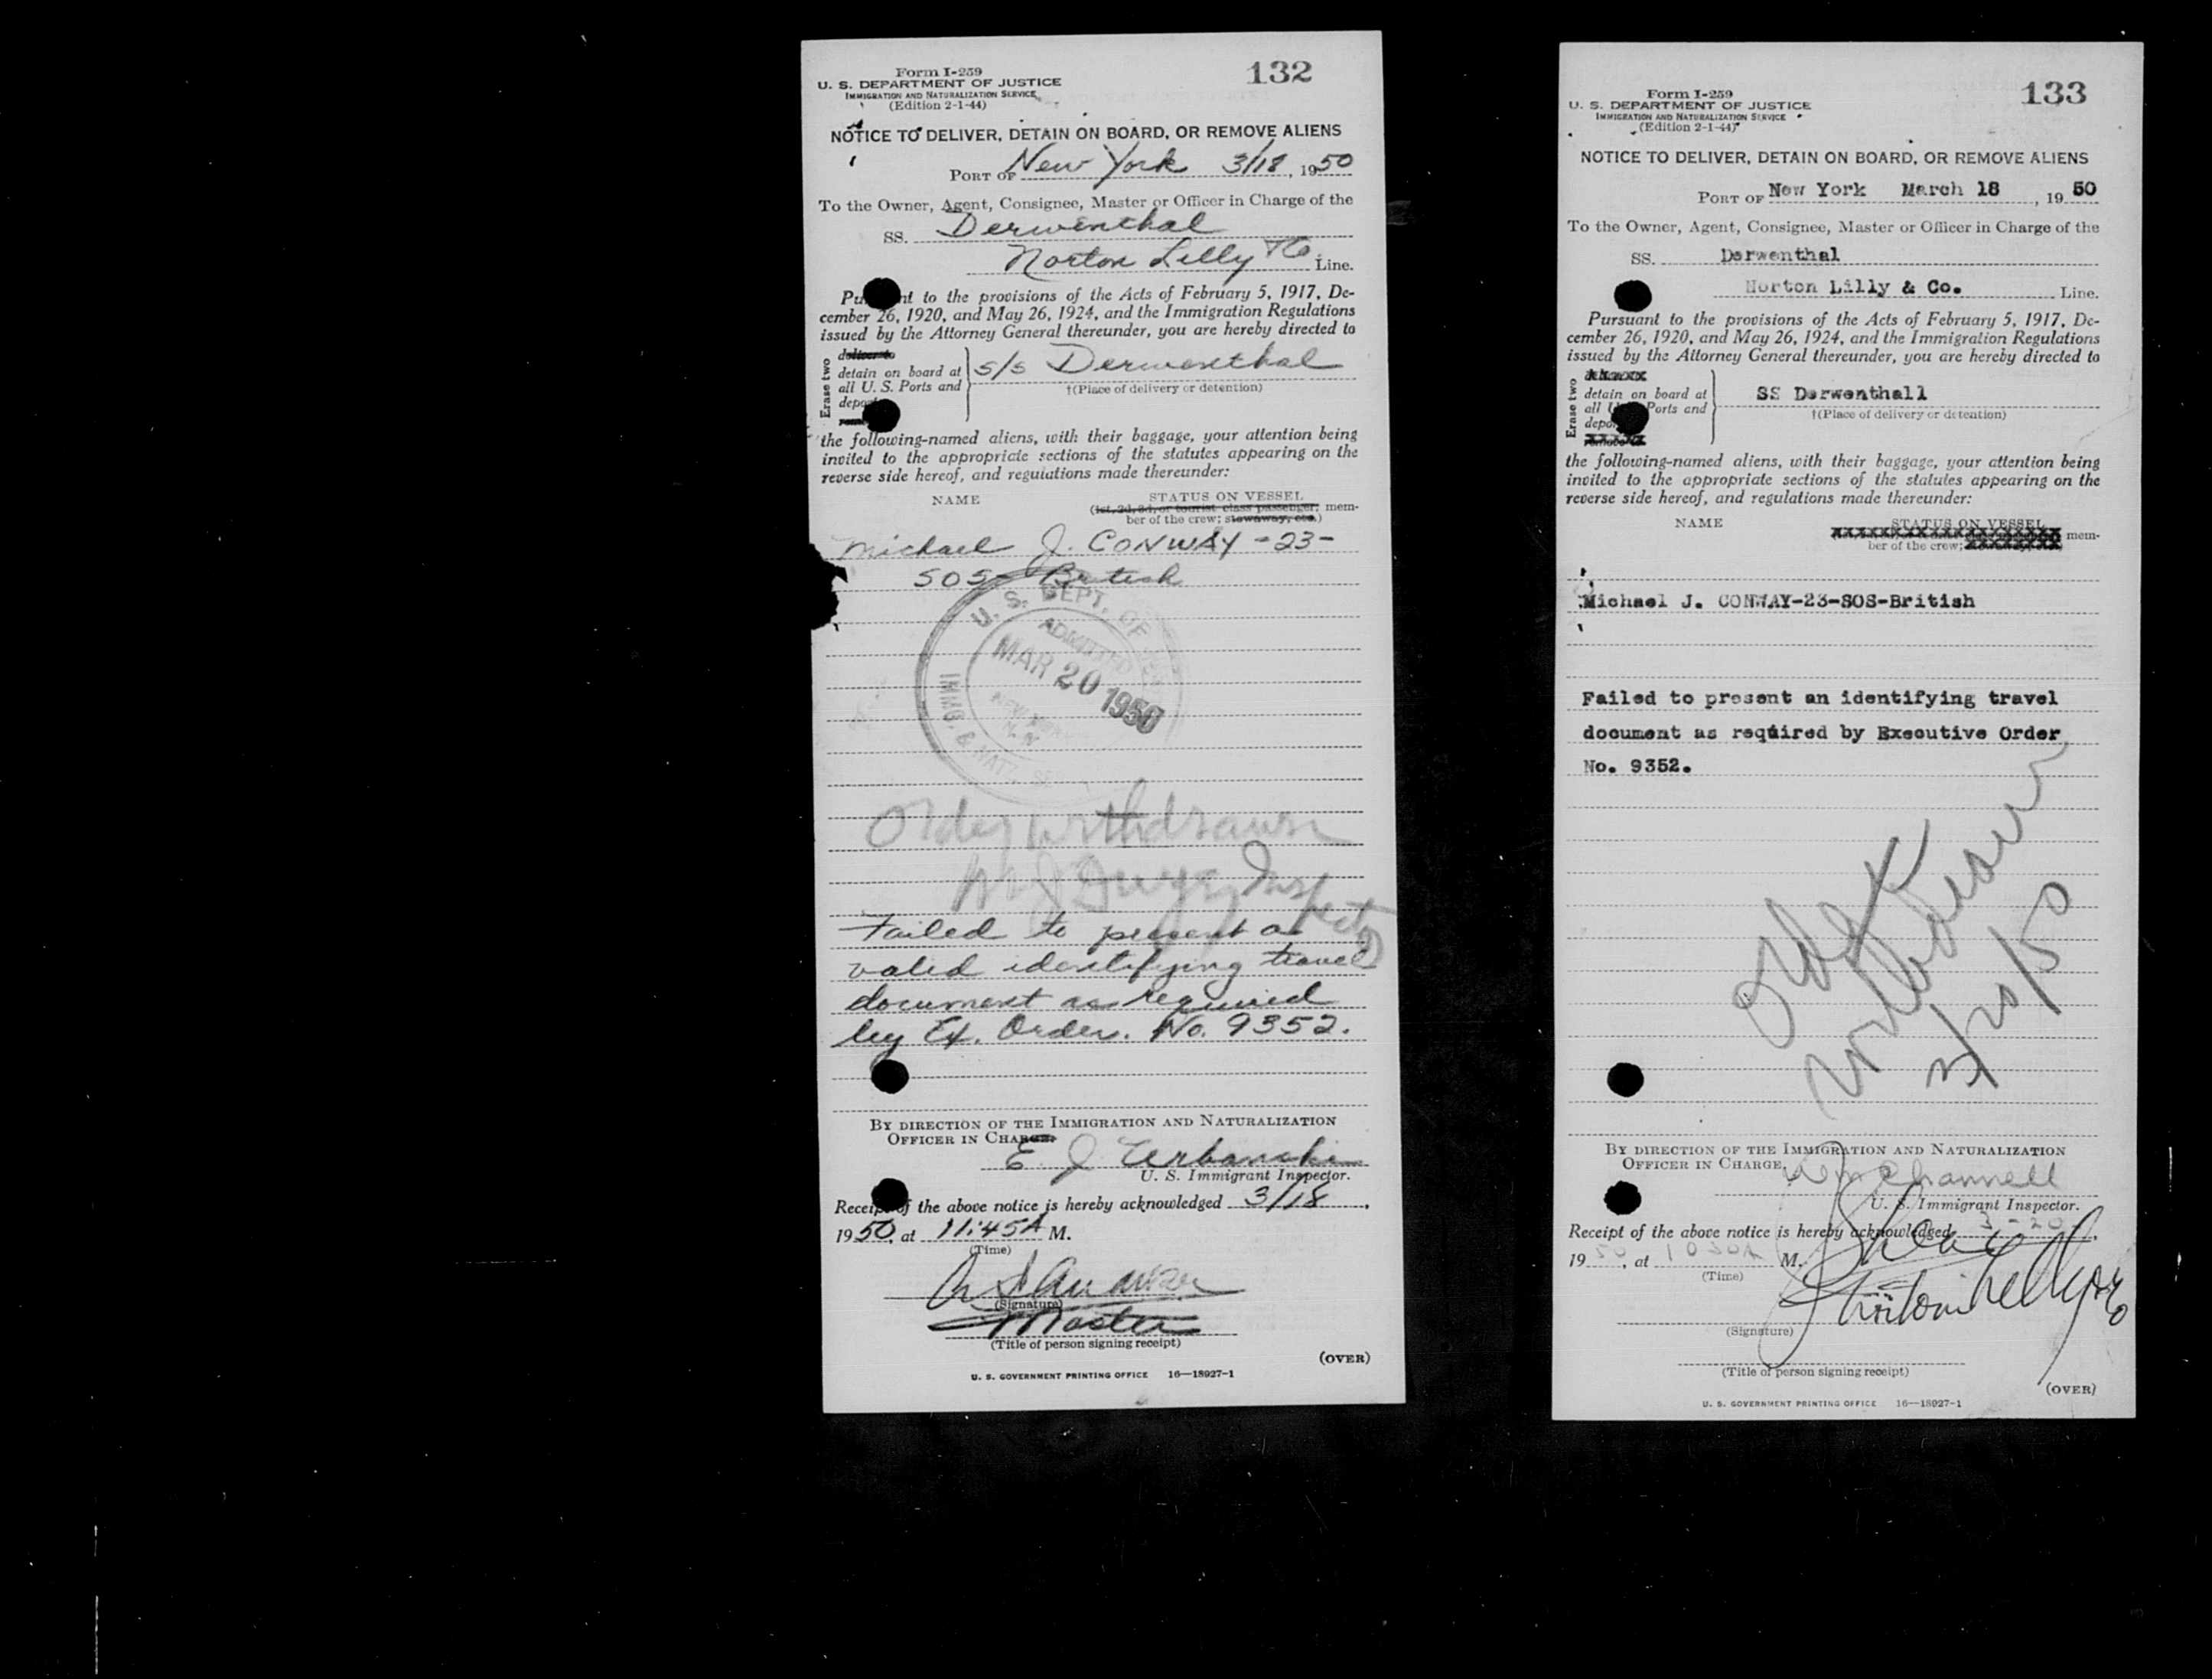 Form I-259
132
U. S. DEPARTMENT OF JUSTICE
IMMIGRATION AND NATURALIZATION SERVICE
(Edition 2-1-44)
NOTICE TO DELIVER, DETAIN ON BOARD, OR REMOVE ALIENS
PORT OF New York 3/18, 1950
To the Owner, Agent, Consignee, Master or Officer in Charge of the
SS. Derwenthal
Norton Lilly & Co. Line.
Pu nt to the provisions of the Acts of February 5, 1917, De-
cember 26, 1920, and May 26, 1924, and the Immigration Regulations
issued by the Attorney General thereunder, you are hereby directed to
Erase two
deliver to
detain on board at
all U. S. Ports and
depo
s/s Derwenthal
†(Place of delivery or detention)
the following-named aliens, with their baggage, your attention being
invited to the appropriate sections of the statutes appearing on the
reverse side hereof, and regulations made thereunder:
NAME
STATUS ON VESSEL
(1st, 2d, 3d, or tourist class passenger; mem-
ber of the crew; stowaway, etc.)
Michael J. CONWAY -23-
SOS British
U. S. DEPT. OF
ADMITTED
MAR 20 1950
NEW YORK
N. Y.
IMMIG. & NATZ. SE
Order withdrawn
Inspector
Failed to present a
valid identifying travel
document as required
by Ex. Order. No. 9352.
BY DIRECTION OF THE IMMIGRATION AND NATURALIZATION
OFFICER IN CHARGE.
E J Urbanski
U. S. Immigrant Inspector.
Receip of the above notice is hereby acknowledged 3/18,
1950, at 11:45A M.
(Time)
(Signature)
Master
(Title of person signing receipt)
(OVER)
U. S. GOVERNMENT PRINTING OFFICE 16—18927-1
Form I-259
133
U. S. DEPARTMENT OF JUSTICE
IMMIGRATION AND NATURALIZATION SERVICE
(Edition 2-1-44)
NOTICE TO DELIVER, DETAIN ON BOARD, OR REMOVE ALIENS
PORT OF New York March 18, 1950
To the Owner, Agent, Consignee, Master or Officer in Charge of the
SS. Derwenthal
Norton Lilly & Co. Line.
Pursuant to the provisions of the Acts of February 5, 1917, De-
cember 26, 1920, and May 26, 1924, and the Immigration Regulations
issued by the Attorney General thereunder, you are hereby directed to
Erase two
detain on board at
all U Ports and
depo
remove to
SS Derwenthall
†(Place of delivery or detention)
the following-named aliens, with their baggage, your attention being
invited to the appropriate sections of the statutes appearing on the
reverse side hereof, and regulations made thereunder:
NAME
STATUS ON VESSEL
mem-
ber of the crew;
Michael J. CONWAY-23-SOS-British
Failed to present an identifying travel
document as required by Executive Order
No. 9352.
Order
withdrawn
3/20/50
BY DIRECTION OF THE IMMIGRATION AND NATURALIZATION
OFFICER IN CHARGE.
U. S. Immigrant Inspector.
Receipt of the above notice is hereby acknowledged 3-20-,
1950, at 1030A M.
(Time)
(Signature)
(Title of person signing receipt)
(OVER)
U. S. GOVERNMENT PRINTING OFFICE 16—18927-1